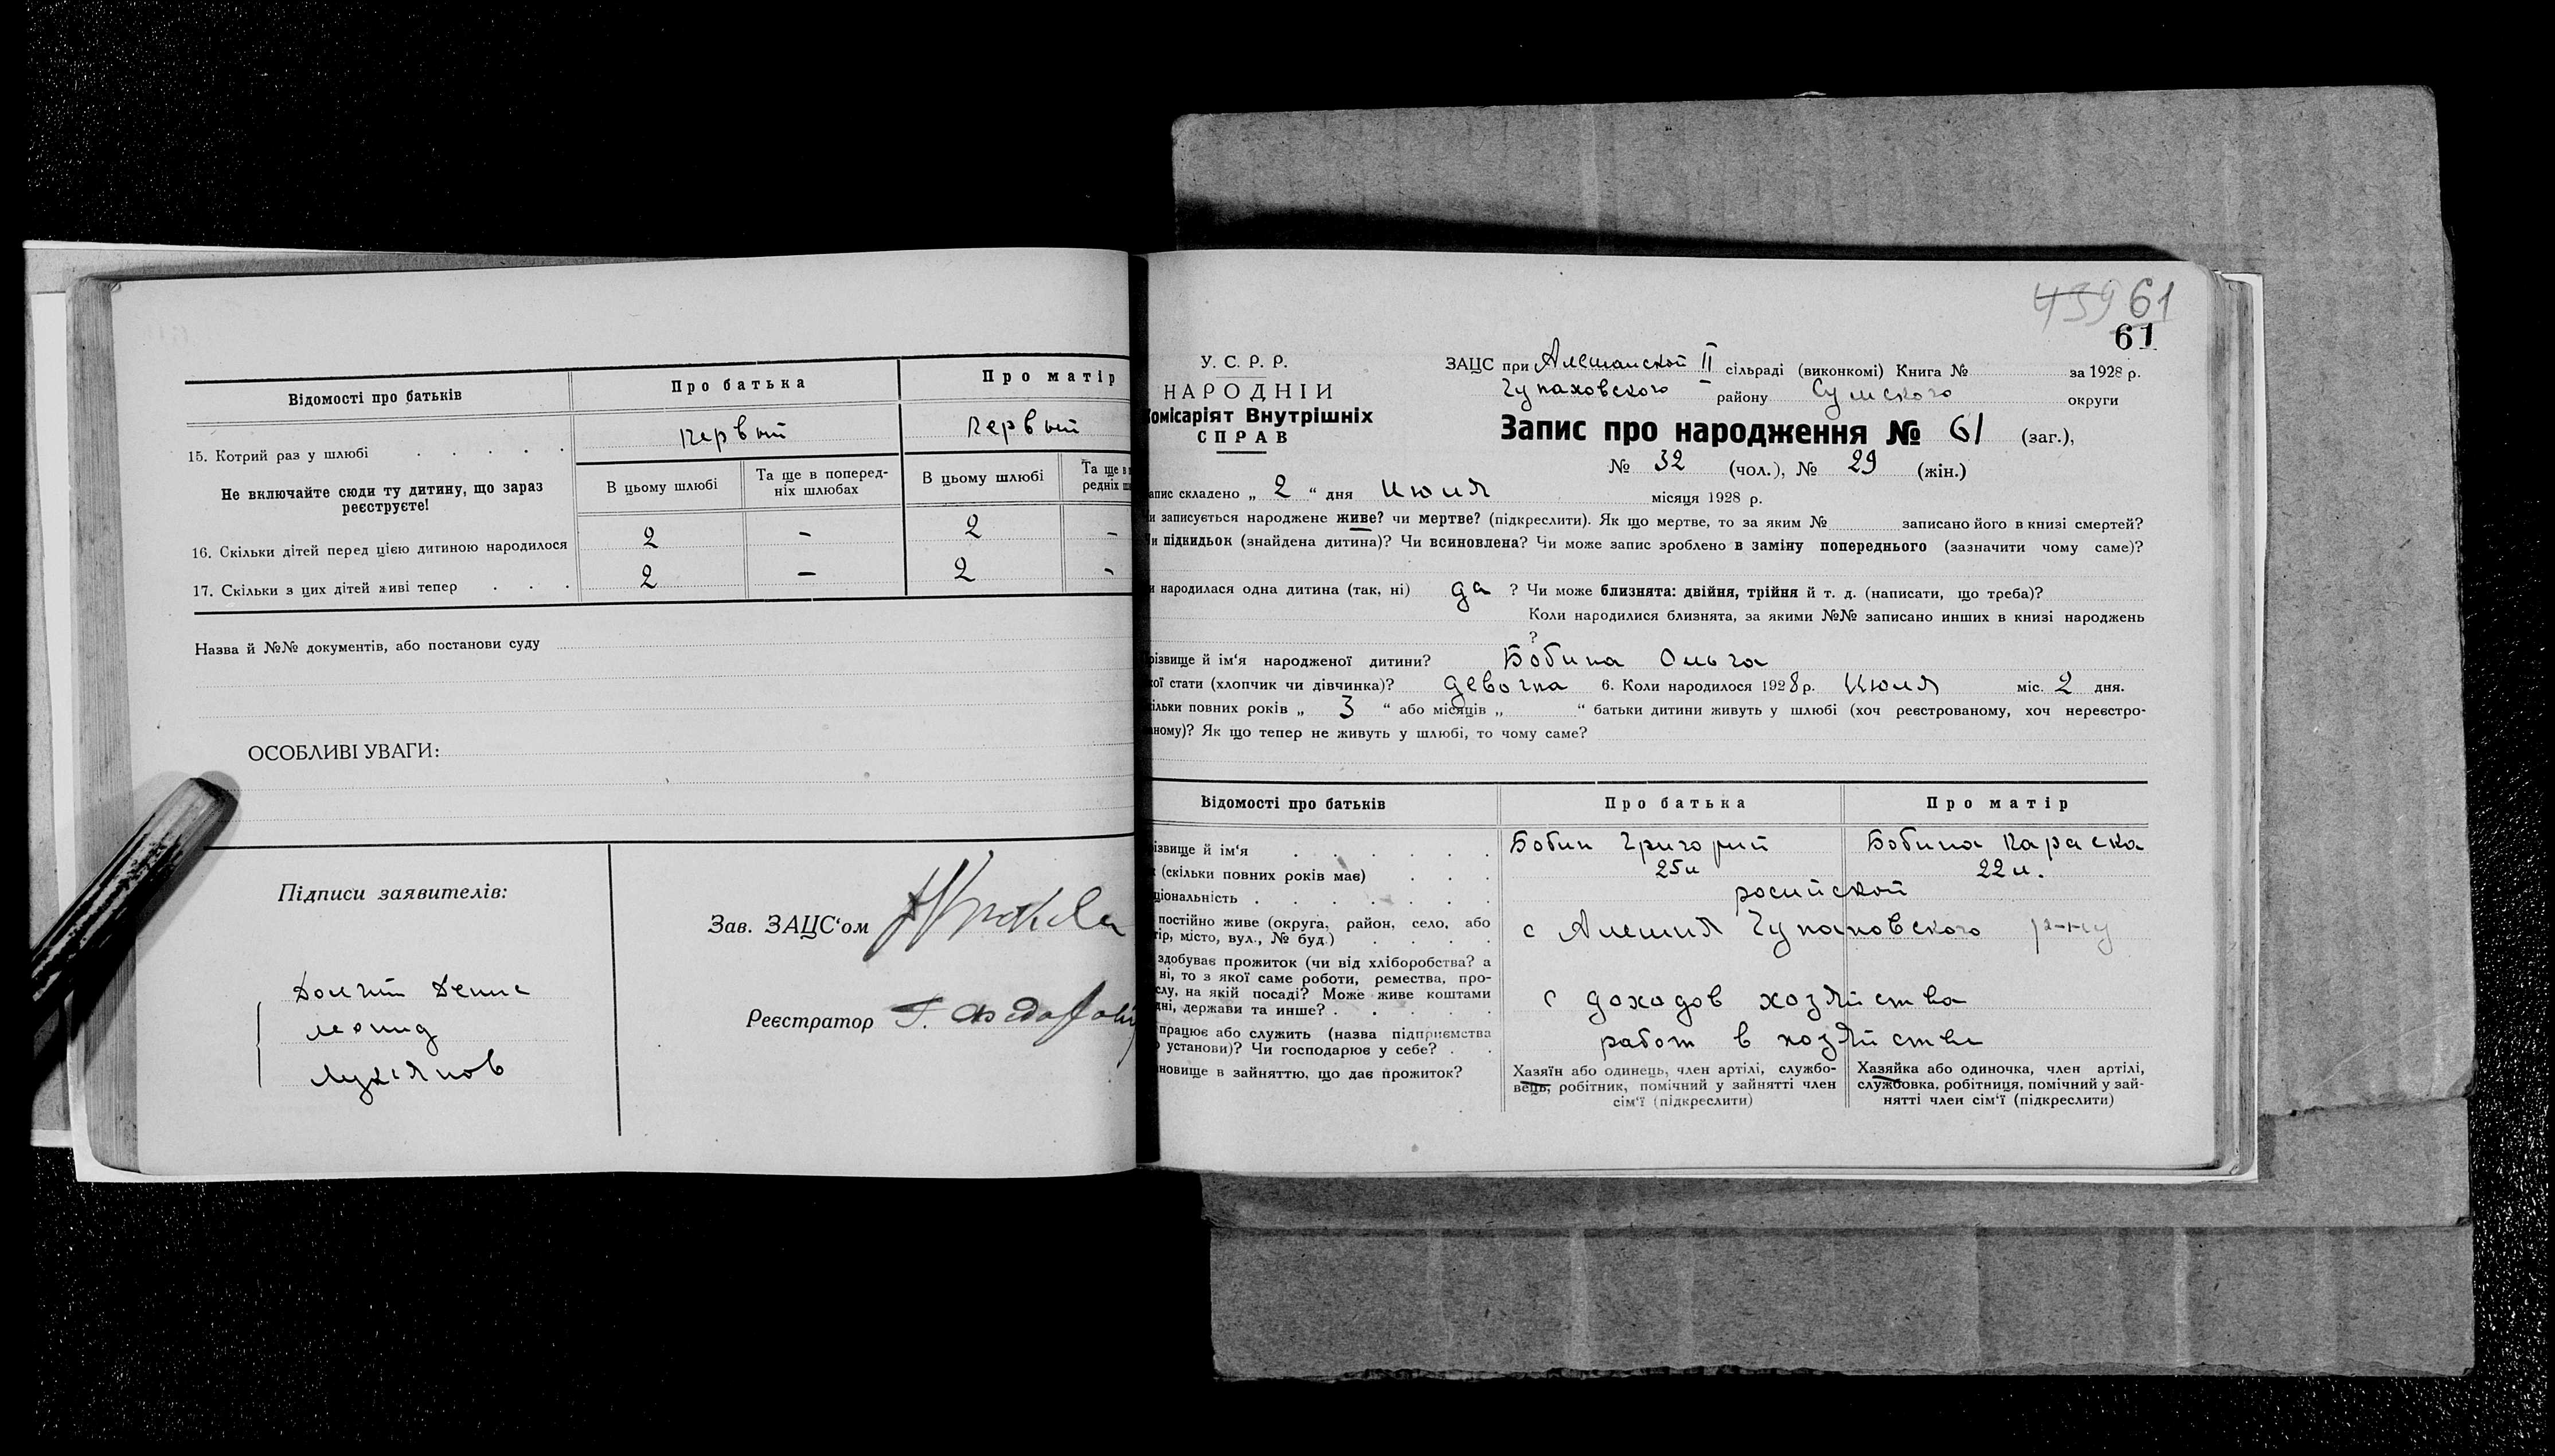 Відомості про батьків
Про батька
Про матір
15. Котрий раз у шлюбі
первый
первый
Не включайте сюди ту дитину, що зараз
реєструєте!
В цьому шлюбі
Та ще в поперед-
ніх шлюбах
В цьому шлюбі
Та ще в
редніх
16. Скільки дітей перед цією дитиною народилося
2 - 2 -
17. Скільки з цих дітей живі тепер
2 - 2 -
Назва й №№ документів, або постанови суду
ОСОБЛИВІ УВАГИ:
Підписи заявителів:
Зав. ЗАЦС'ом
Реєстратор Г.
439 61
61
У. С. Р. Р.
НАРОДНІЙ
омісаріят Внутрішніх
СПРАВ
ЗАЦС при Алешанской II сільраді (виконкомі) Книга № за 1928 р.
Чупаховского району Сумского округи
Запис про народження № 61 (заг.),
№ 32 (чол.), № 29 (жін.)
апис складено „ 2 “ дня Июля місяця 1928 р.
и записується народжене живе? чи мертве? (підкреслити). Як що мертве, то за яким № записано його в книзі смертей?
Чи підкидьок (знайдена дитина)? Чи всиновлена? Чи може запис зроблено в заміну попереднього (зазначити чому саме)?
и народилася одна дитина (так, ні) да ? Чи може близнята: двійня, трійня й т. д. (написати, що треба)?
Коли народилися близнята, за якими №№ записано инших в книзі народжень
?
різвище й ім'я народженої дитини? Бобина Ольга
кої стати (хлопчик чи дівчинка)? девочка 6. Коли народилося 1928 р. Июля міс. 2 дня.
ільки повних років „ 3 “ або місяців „ “ батьки дитини живуть у шлюбі (хоч реєстрованому, хоч нереєстро-
аному)? Як що тепер не живуть у шлюбі, то чому саме?
Відомості про батьків
Про батька
Про матір
ізвище й ім'я
Бобин Григорий
Бобина Параска
(скільки повних років має)
25
22
ціональність
росийской
постійно живе (округа, район, село, або
тір, місто, вул., № буд.)
с Алешня Чупаховского р-ну
здобуває прожиток (чи від хліборобства? а
ні, то з якої саме роботи, ремества, про-
слу, на якій посаді? Може живе коштами
дні, держави та инше?
с доходов хозяйства
працює або служить (назва підприємства
установи)? Чи господарює у себе?
работ в хозяйстве
новище в зайняттю, що дає прожиток?
Хазяїн або одинець, член артілі, службо-
вець, робітник, помічний у зайнятті член
сім'ї (підкреслити)
Хазяйка або одиночка, член артілі,
службовка, робітниця, помічний у зай-
нятті член сім'ї (підкреслити)